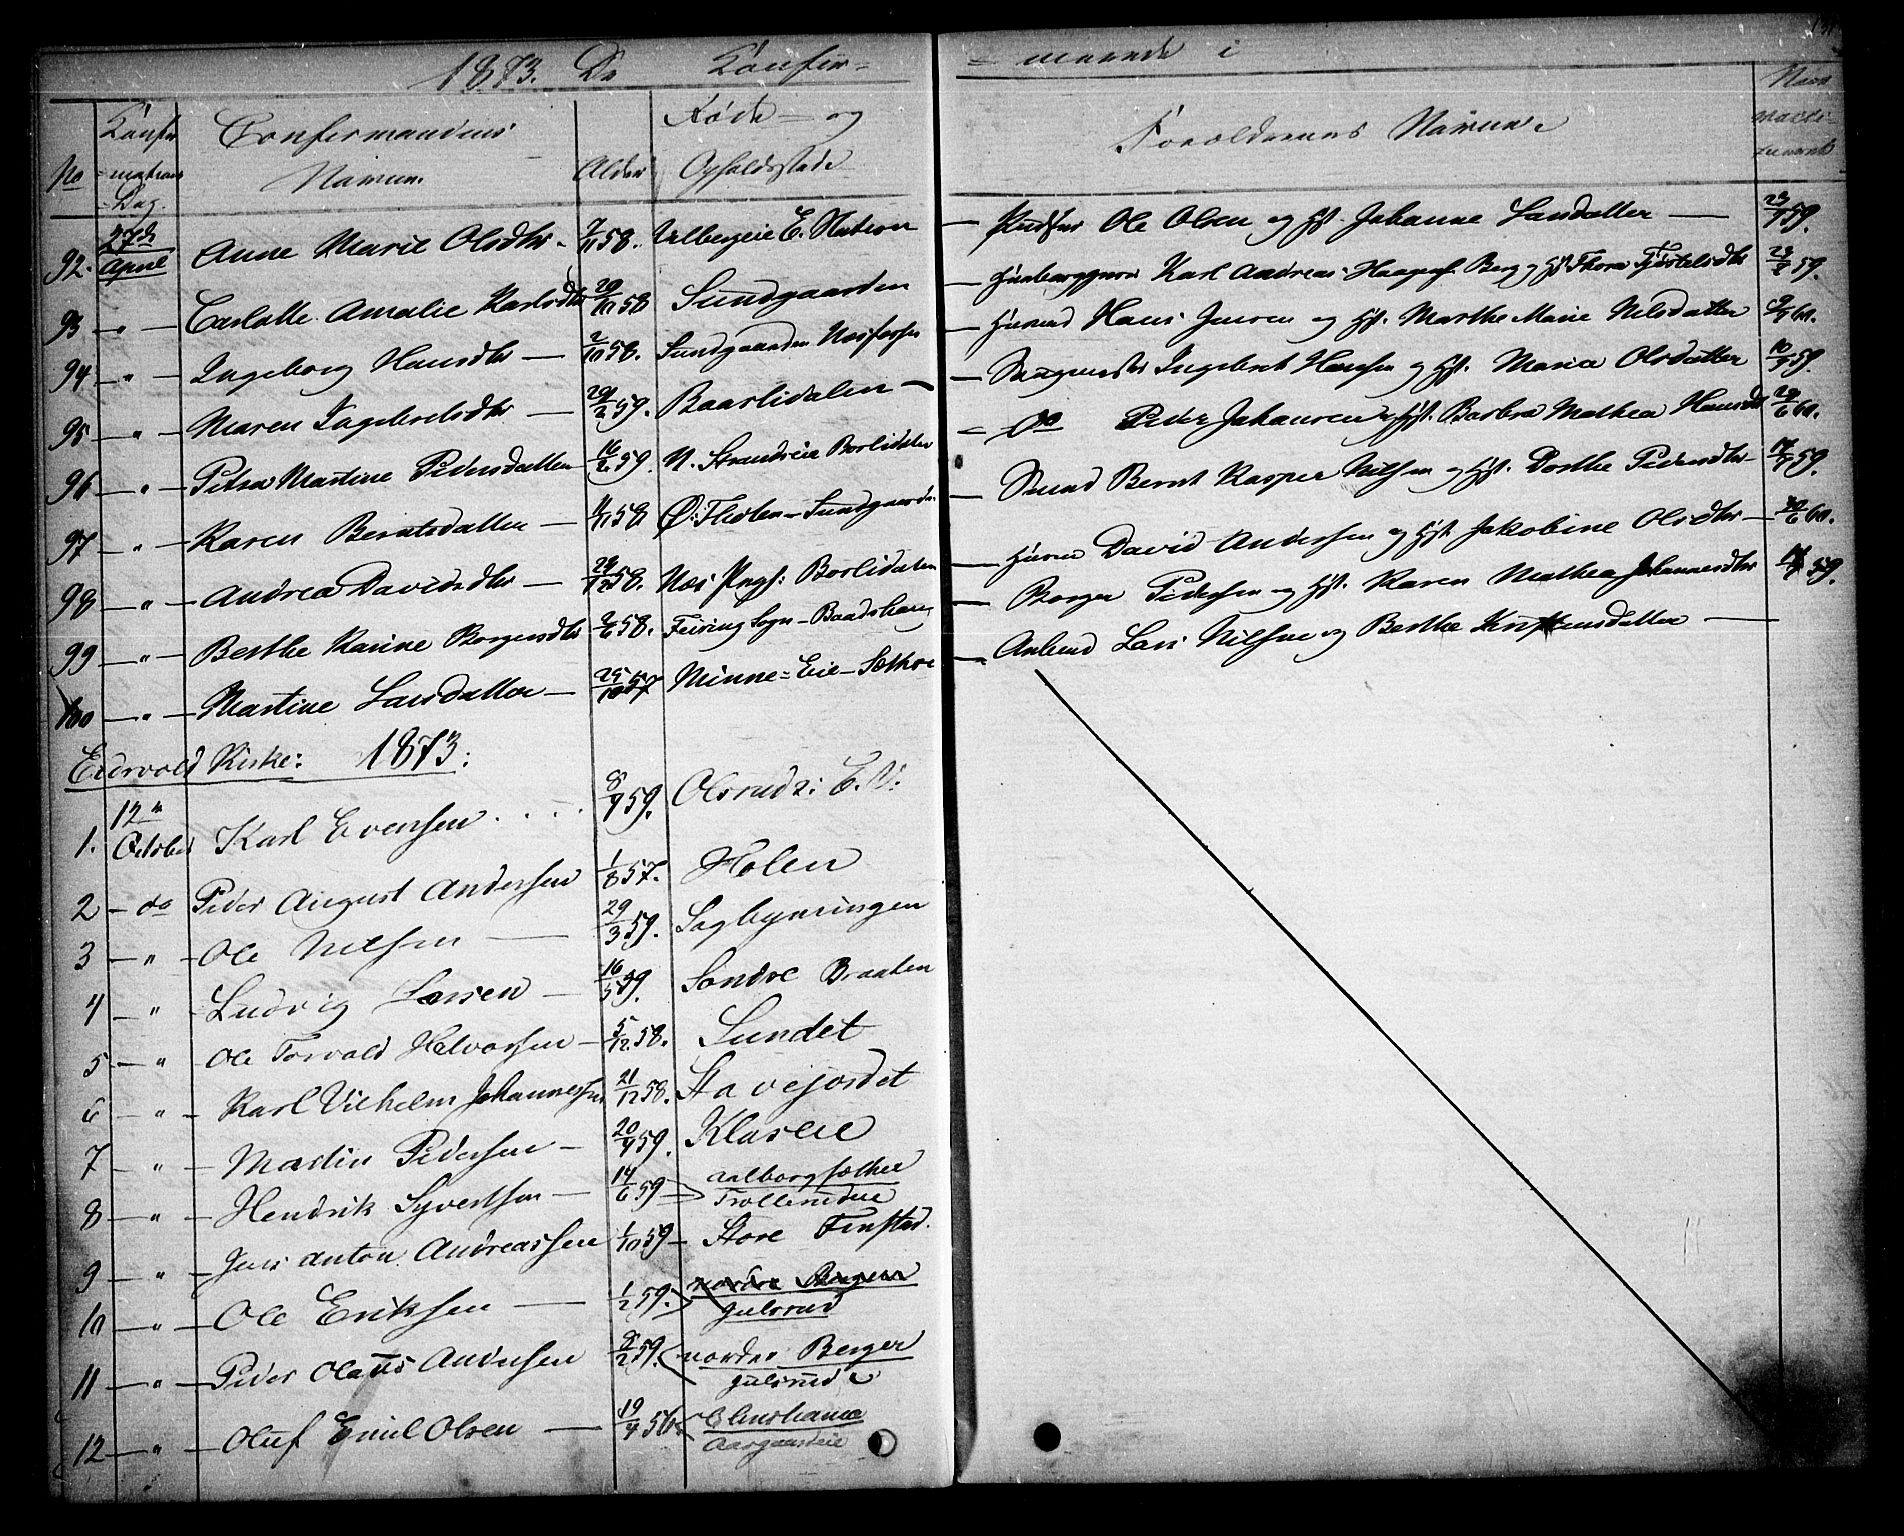 1873. De Konfir=
= merede i
No
Konfir
=mations
=Dag.
Confirmandens
Navn
Alder
Føde = og
Opholdsstede
Forældrenes Navne
Naar
Vacci=
neret
92. 27de April Anne Marie Olsdtr. 7/11 58. E. Station — Ole Olsen og Hst. Johanne Larsdatter — 23/9 59.
93 — " — Carlotte Amalie Karlsdtr 20/11 58 Sundgaarden — Karl Andreas Haagens. Berg og Hst Thora 23/8 59.
94 — " — Ingeborg Hansdtr — 2/10 58. Sundgaarden Næsfossen — Huusmd Hans Jensen og Hst. Marthe Marie Nilsdatter 60.
95 — " — Maren Ingebretsdtr — 59. Baarlidalen — Ingebret Hansen og Hst. Maria Olsdatter 10/9 59.
96 — " — Petra Martine Pedersdatter 16/2 59. N. Strandeie Borlidalen — do Peder Johansen og Hst. Barbra Mathea Hansdtr 60.
97 — " — Karen Berntsdatter — 11/11 58 Ø. Sundgaarden — Bernt Kasper Nilsen og Hst. Dorthe Pedersdtr 17/9 59.
98 — " — Andrea Davidsdtr — 29/12 58. Næs Prgj: Borlidalen — David Andersen og Hst Jakobine Olsdtr — 60.
99 — " — Berthe Karine Borgersdtr 2/6 58. Feiring Sogn — Baadshaug — Borger Pedersen og Hst. Karen Mathea Johannesdtr 59.
100 — " — Martine Larsdatter — 25/10 57 Minne = Eie — Sæthre — Lars Nilsen og Berthe Kristensdatter —
Eidsvold Kirke: 1873.
1. 12te October Karl Evensen . . . . 8/9 59. Olsrud i E. V.
2 — do Peder August Andersen 1/8 57. Holen
3 — " — Ole Nilsen — 29/3 59. Sagbynningen
4 — " — Ludvig Larsen — 16/5 59. Søndre Braaten
5 — " Ole Torvald Helvorsen — 5/12 58. Sundet
6 — " — Karl Vilhelm Johannessen 21/12 58. Stavejordet
7 — " — Martin Pedersen — 20/9 59. Klaseie
8 — " — Hendrik Syvertsen — 14/6 59 Aalborgsæther
Trollerudeie
9 — " — Jens Anton Andreassen 1/10 59 — Store Finstad.
10 — " — Ole Eriksen — 1/2 59. nordre Berger
Julsrud
11 — " — Peder Olaus Andersen 8/2 59. nordre Berger
Julsrud
12 — " — Oluf Emil Olsen — 19/4 56